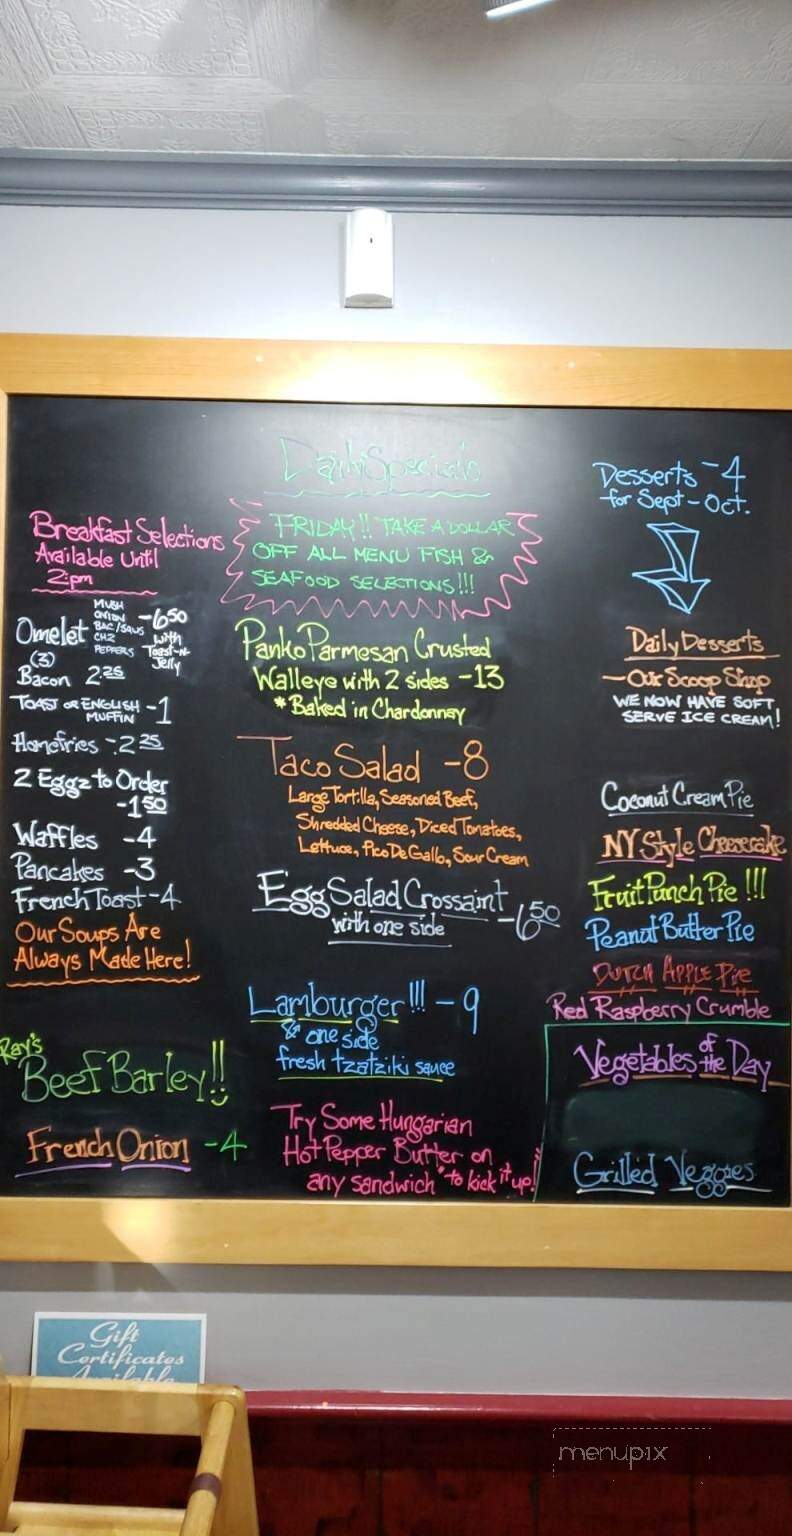 Daily Specials
FRIDAY!! TAKE A DOLLAR
OFF ALL MENU FISH &
SEAFOOD SELECTIONS!!!
Breakfast Selections
Available Until
2:pm
Omelet
(3)
MUSH
ONION
BAC/SAUS
CHZ
PEPPERS
-6.50
with
Toast-n-
Jelly
Bacon 2.25
TOAST OR ENGLISH
MUFFIN -1
Homefries -2.25
2 Eggz to Order
-1.50
Waffles -4
Pancakes -3
French Toast -4
Our Soups Are
Always Made Here!
Ray's
Beef Barley!!
French Onion -4
Panko Parmesan Crusted
Walleye with 2 sides -13
*Baked in Chardonnay
Taco Salad -8
Large Tortilla, Seasoned Beef,
Shredded Cheese, Diced Tomatoes,
Lettuce, Pico De Gallo, Sour Cream
Egg Salad Crossaint
with one side -6.50
Lamburger!!! -9
& one side
fresh tzatziki sauce
Try Some Hungarian
Hot Pepper Butter on
any sandwich "to kick it up!"
Desserts -4
for Sept-Oct.
Daily Desserts
-Our Scoop Shop
WE NOW HAVE SOFT
SERVE ICE CREAM!
Coconut Cream Pie
NY Style Cheesecake
Fruit Punch Pie!!!
Peanut Butter Pie
DUTCH APPLE Pie
Red Raspberry Crumble
Vegetables of the Day
Grilled Veggies
Gift
Certificates
Available
menupix